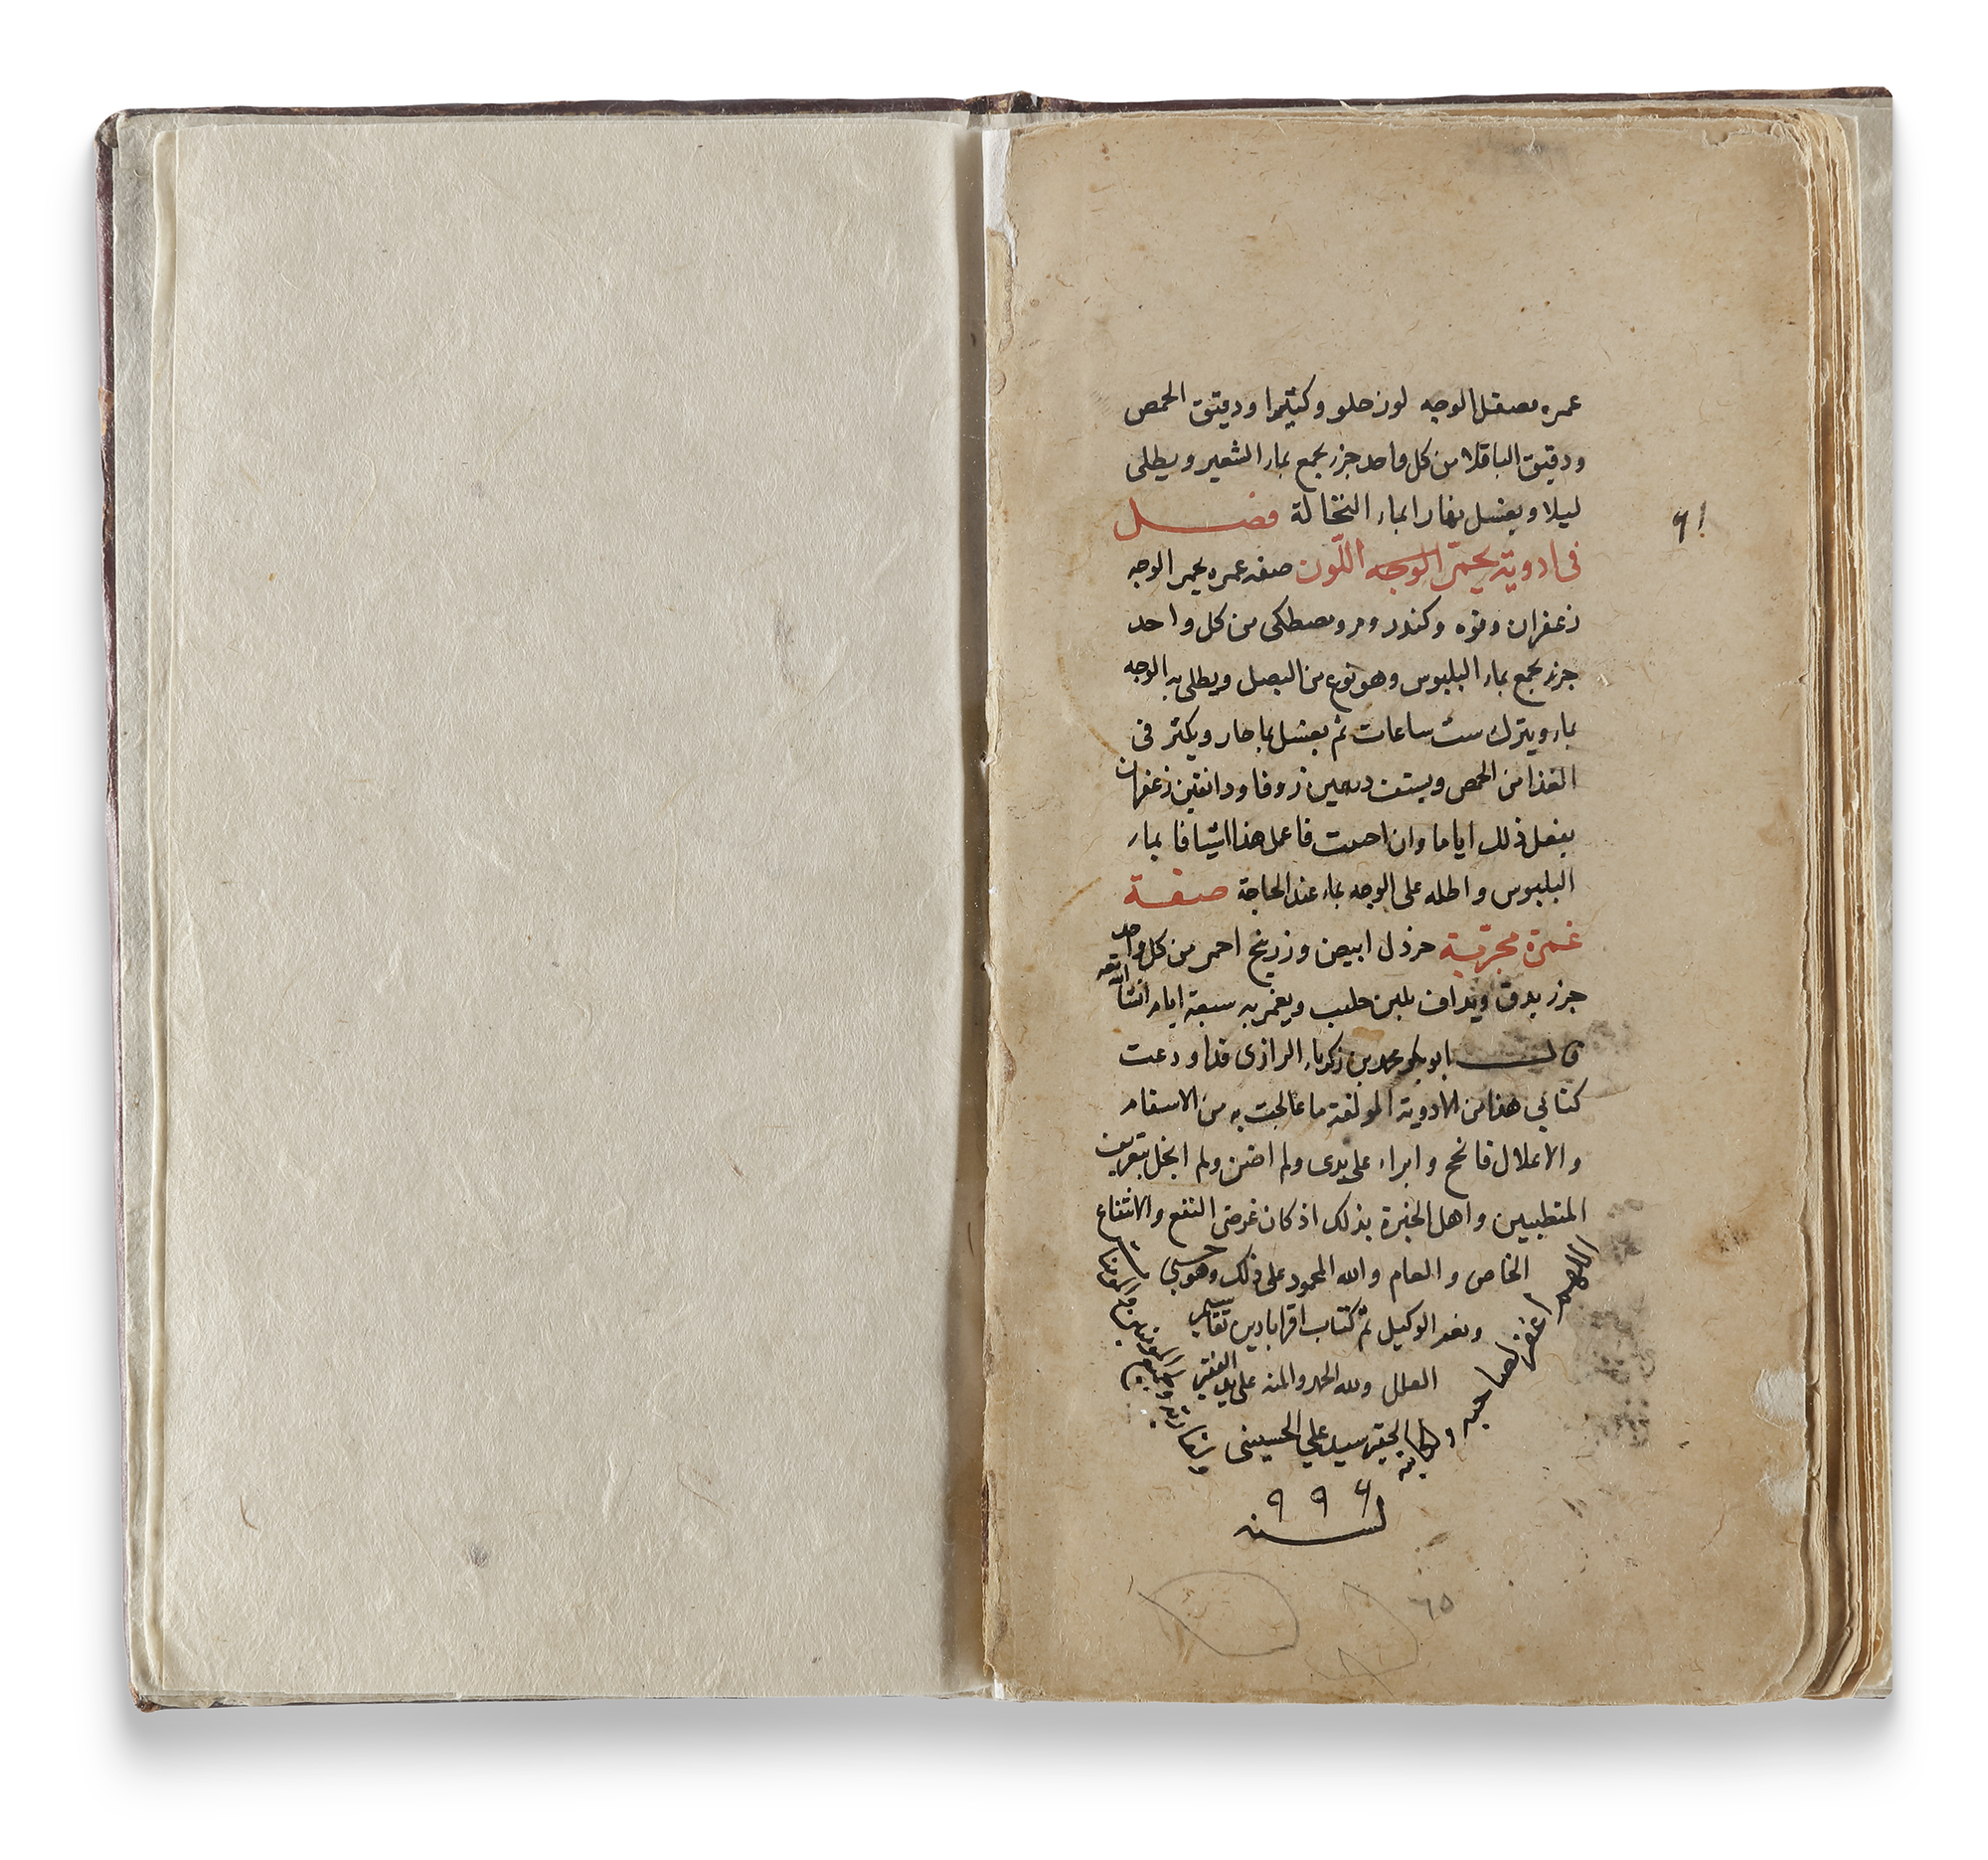 غمره تصقل الوجه لوز حلو وكثيرا ودقيق الحمص
ودقيق الباقلا من كل واحد جزء يجمع بماء الشعير ويطلى
ليلا ويغسل نهارا بماء النخالة فصــل
فى ادوية يحمّر الوجه اللّون صفه غمره يحمر الوجه
زعفران وفوه وكندر ومر ومصطكى من كل واحد
جزء يجمع بماء البلبوس وهو نوع من البصل ويطلى به الوجه
بماء ويترك ست ساعات ثم يغسل بماء حار ويكثر فى
الغذا من الحمص ويستف درهمين زوفا ودانقين زعفران
يفعل ذلك اياما وان احببت فاعمل هذا اشيافا بماء
البلبوس واطله على الوجه بماء عند الحاجة صفــة
غمرة مجرّبة خردل ابيض وزرنيخ احمر من كل واحد
جزء يدق ويداف بلبن حليب ويغمر به سبعة ايام انشا الله تعه
قالــ ابو بكر محمد بن زكرياء الرازى قد اودعت
كتابي هذا من الادوية المولفة ما عالجت به من الاسقام
والاعلال فانجح وابراء على يدى ولم اضن ولم ابخل بتعريف
المتطببين واهل الخبرة بذلك اذ كان غرضى النفع والانتفاع
الخاص والعام والله المحمود على ذلك وهو حسبي
ونعم الوكيل تم كتاب اقرابادين تقاسيم
العلل ولله الحمد والمنه على يد الفقير
الحقير سيد علي الحسينى
اللهم اغفر لصاحبه وكاتبه
لسنه ٩٩٦
٦٥